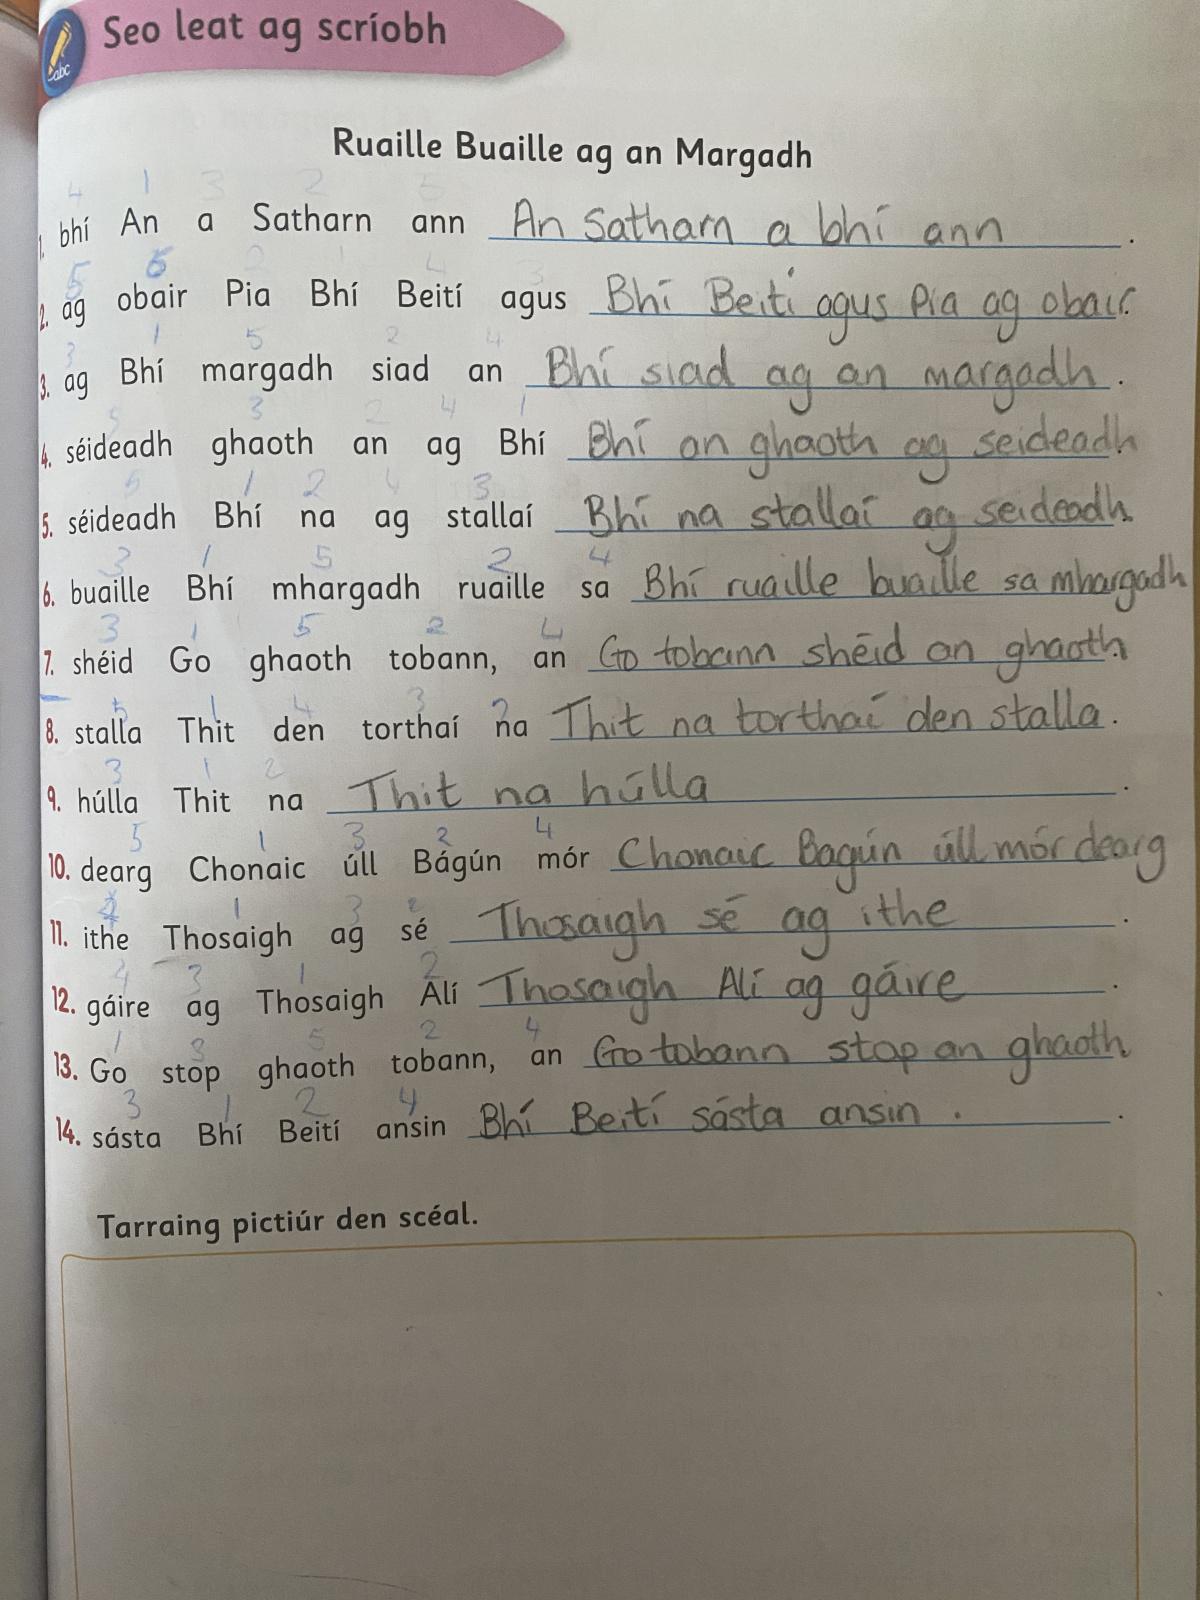 abc
Seo leat ag scríobh
Ruaille Buaille ag an Margadh
4 1 3 2 5
1. bhí An a Satharn ann An Satharn a bhí ann.
5 6 2 1 4 3
2. ag obair Pia Bhí Beití agus Bhí Beití agus Pia ag obair.
3 1 5 2 4
3. ag Bhí margadh siad an Bhí siad ag an margadh.
5 3 2 4 1
4. séideadh ghaoth an ag Bhí Bhí an ghaoth ag seideadh
5 1 2 4 3
5. séideadh Bhí na ag stallaí Bhí na stallaí ag seideadh.
3 1 5 2 4
6. buaille Bhí mhargadh ruaille sa Bhí ruaille buaille sa mhargadh
3 1 5 2 4
7. shéid Go ghaoth tobann, an Go tobann shéid an ghaoth.
5 1 4 3 2
8. stalla Thit den torthaí na Thit na torthaí den stalla.
3 1 2
9. húlla Thit na Thit na húlla.
5 1 3 2 4
10. dearg Chonaic úll Bágún mór Chonaic Bagún úll mór dearg
4 1 3 2
11. ithe Thosaigh ag sé Thosaigh sé ag ithe.
4 3 1 2
12. gáire ag Thosaigh Alí Thosaigh Alí ag gáire.
1 3 5 2 4
13. Go stop ghaoth tobann, an Go tobann stop an ghaoth.
3 1 2 4
14. sásta Bhí Beití ansin Bhí Beití sásta ansin . .
Tarraing pictiúr den scéal.